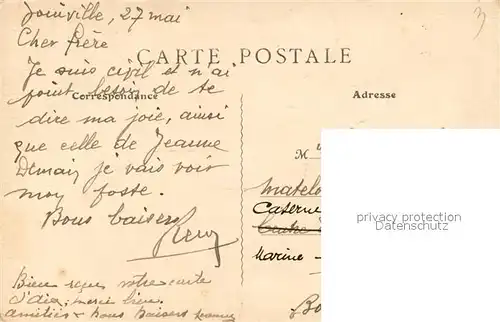 Joinville, 27 mai
Cher frère
CARTE POSTALE
Je suis civil et n'ai
point besoin de te
Correspondance
Adresse
dire ma joie, ainsi
que celle de Jeanne
Demain je vais voir
mon poste.
Bons baisers
M
Matelo
Caserne
Centre
Marine -
Bien reçu votre carte
merci bien.
amitiés & bons baisers Jeanne
privacy protection
3